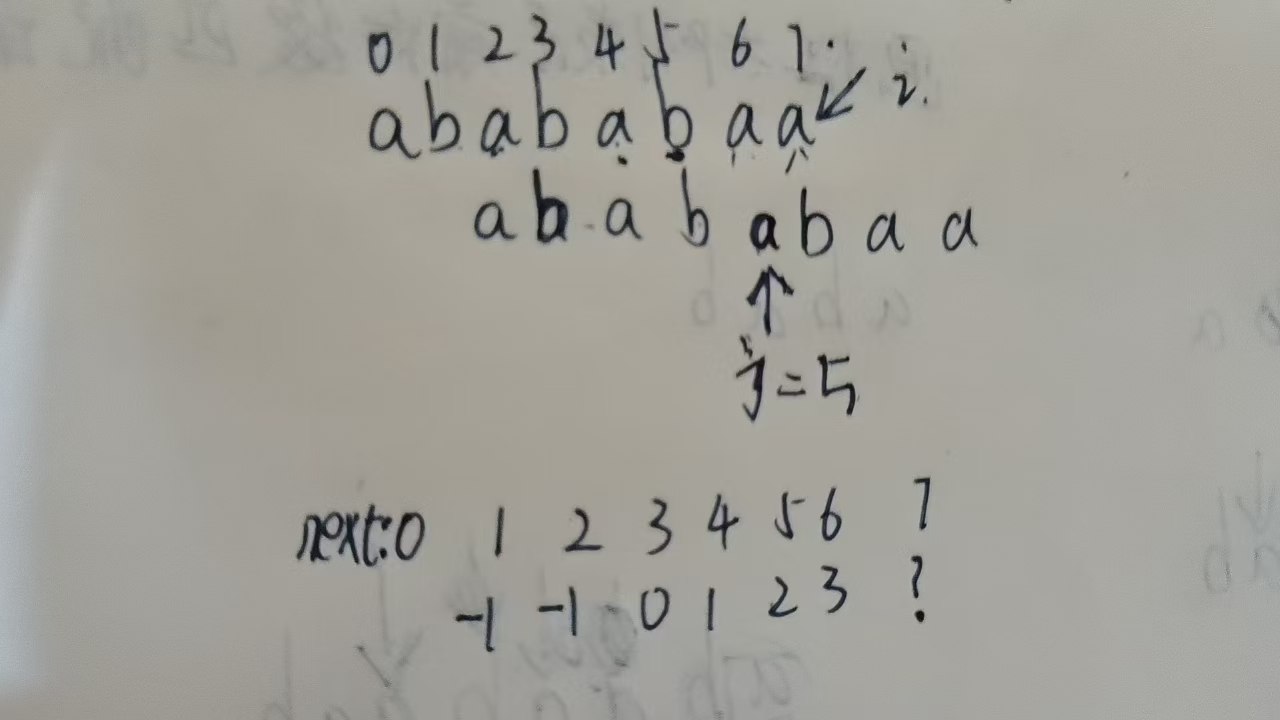 0 1 2 3 4 5 6 7.
a b a b a b a a ↙ i.
a b a b a b a a
↑
j=5
next: 0 1 2 3 4 5 6 7
-1 -1 0 1 2 3 ?